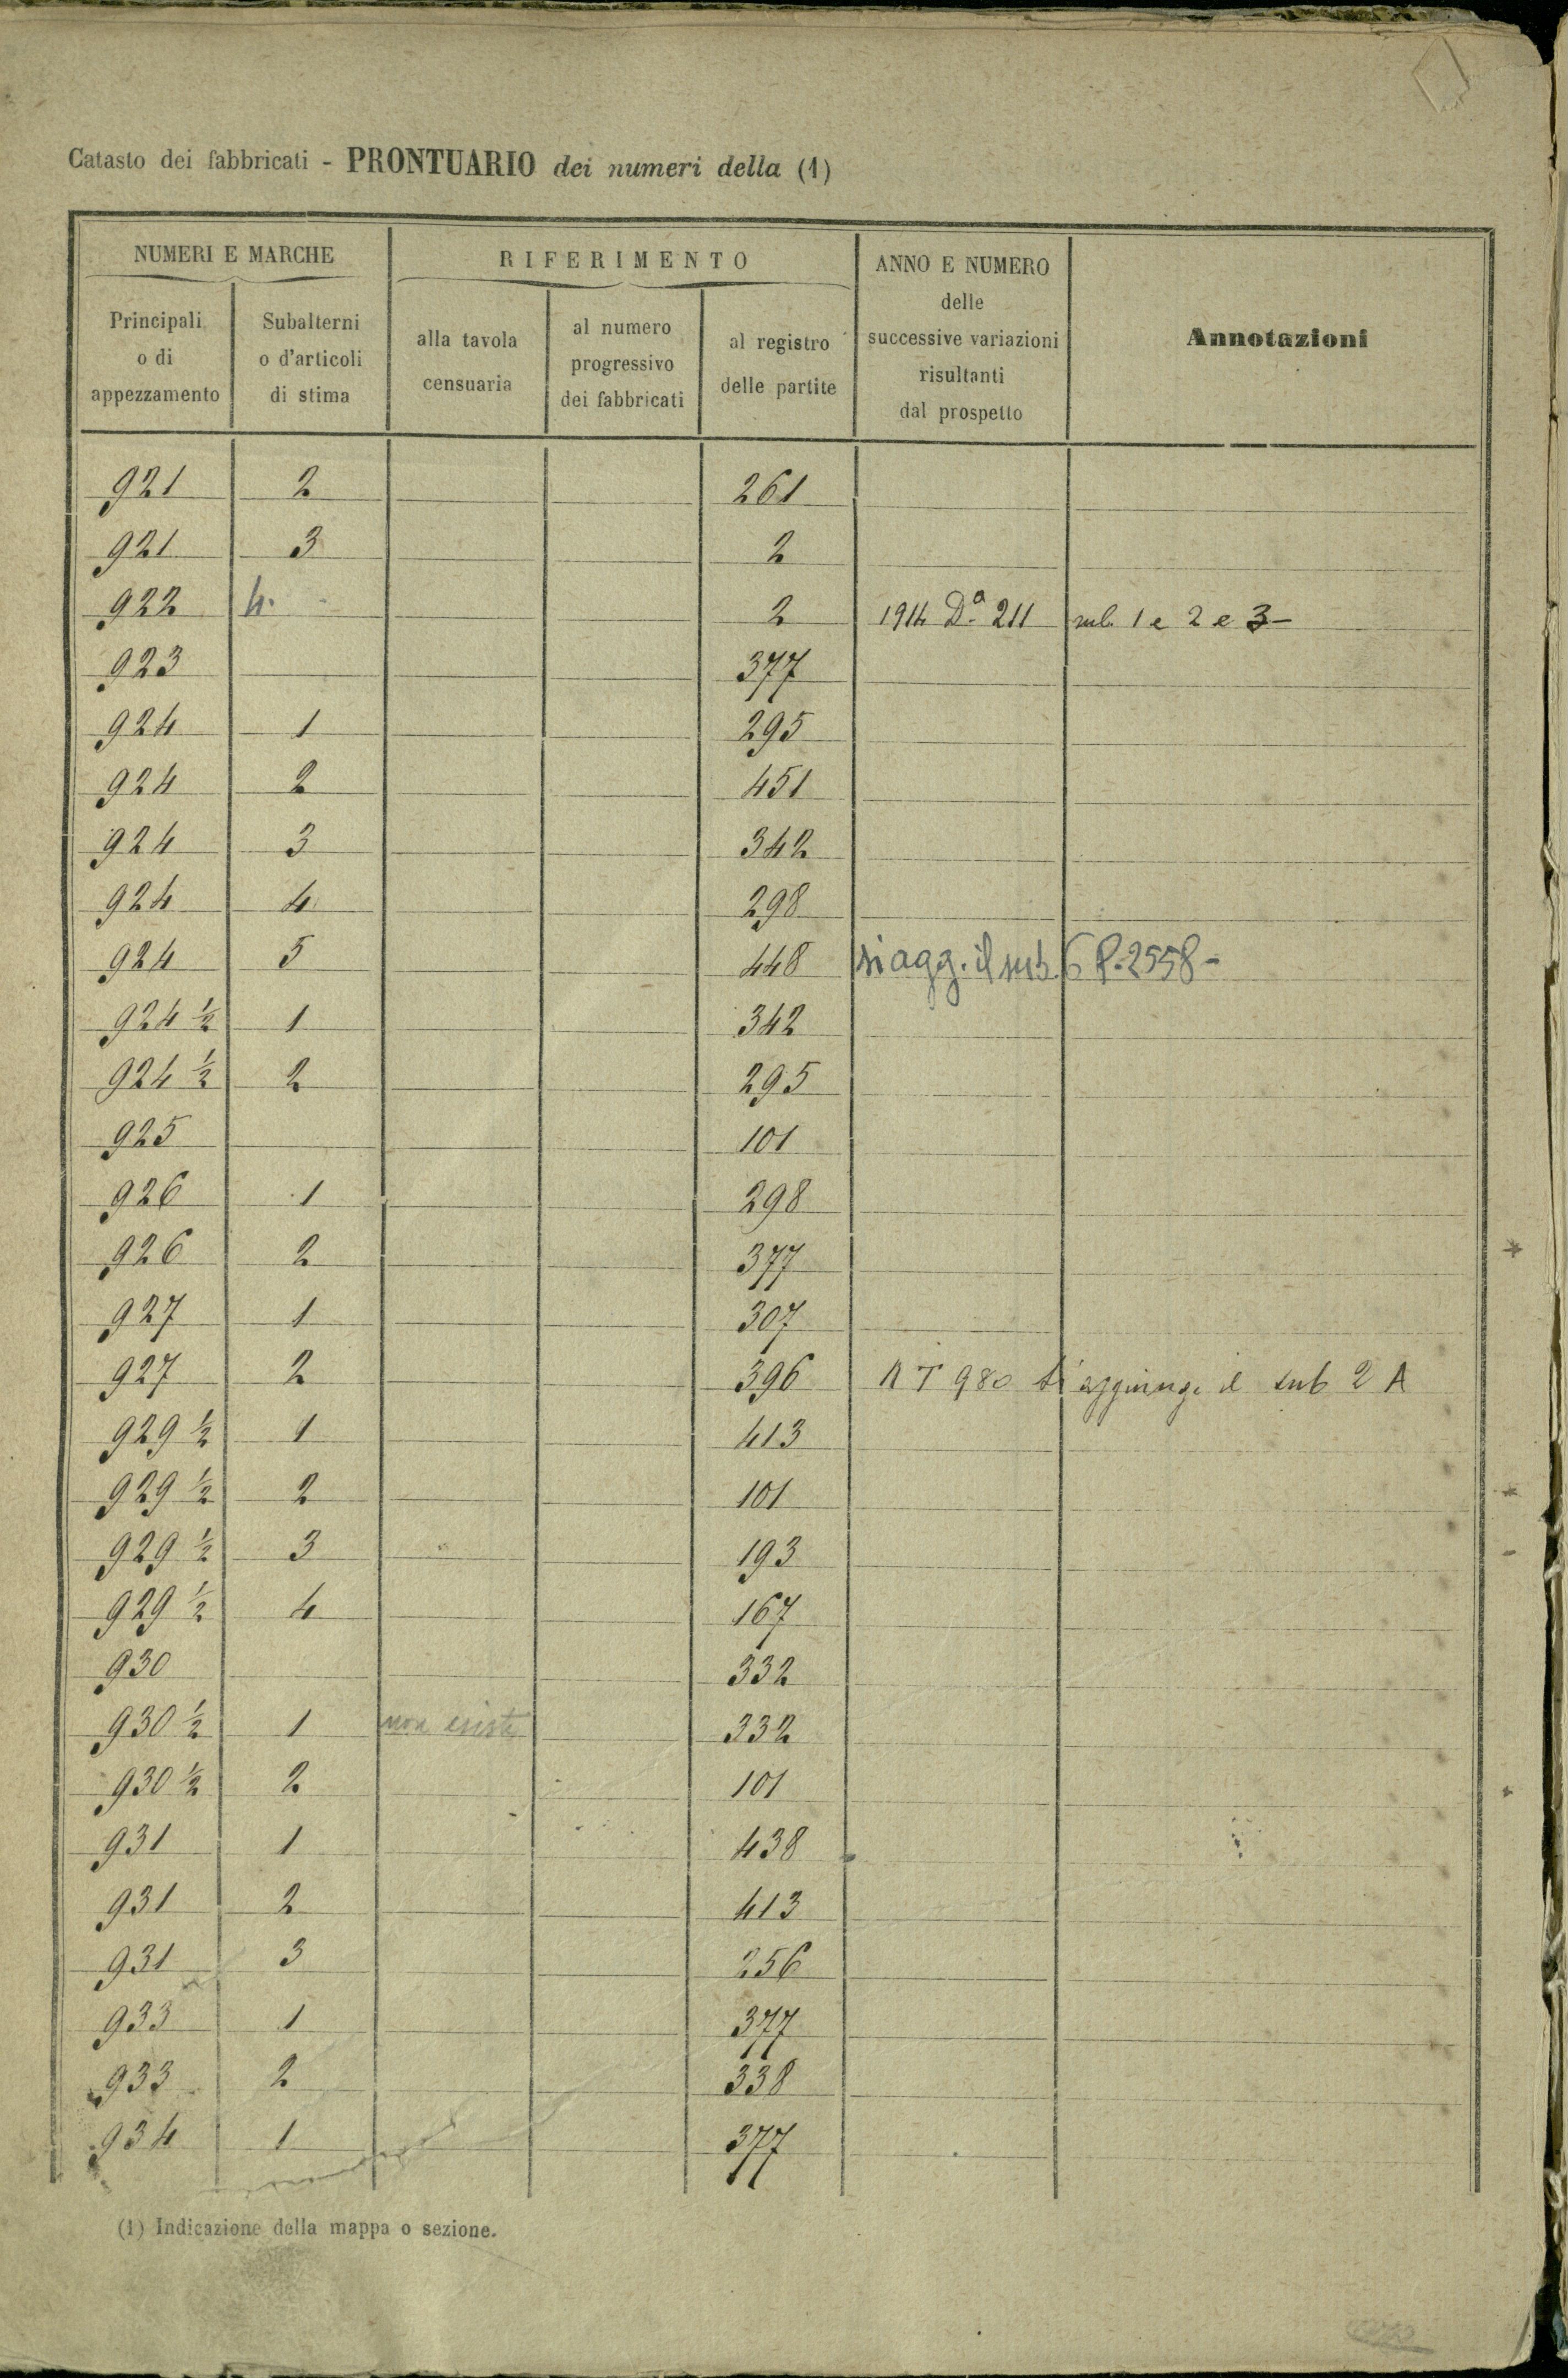 Catasto dei fabbricati - PRONTUARIO dei numeri della (1)
NUMERI E MARCHE
RIFERIMENTO
ANNO E NUMERO
delle
successive variazioni
risultanti
dal prospetto
Annotazioni
Principali
o di
appezzamento
Subalterni
o d'articoli
di stima
alla tavola
censuaria
al numero
progressivo
dei fabbricati
al registro
delle partite
921 2 261
921 3 2
922 4. 2 1914 Dª 211 sub. 1 e 2 e 3-
923 377
924 1 295
924 2 451
924 3 342
924 4 298
924 5 448 si agg. il sub. 6 P. 2558-
924 ½ 1 342
924 ½ 2 295
925 101
926 1 298
926 2 377
927 1 307
927 2 396 N T 980 si aggiunge il sub 2 A
929 ½ 1 413
929 ½ 2 101
929 ½ 3 193
929 ½ 4 167
930 332
930 ½ 1 non esiste 332
930 ½ 2 101
931 1 438
931 2 413
931 3 256
933 1 377
933 2 338
934 1 377
(1) Indicazione della mappa o sezione.